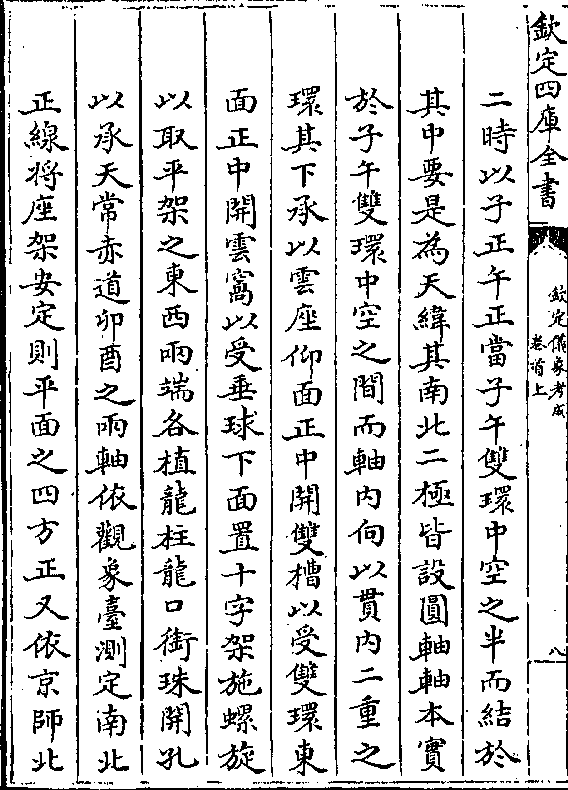 欽定四庫全書
欽定儀象考成
卷首上
八
二時以子正午正當子午雙環中空之半而結於
其中要是為天緯其南北二極皆設圓軸軸本實
於子午雙環中空之間而軸内向以貫内二重之
環其下承以雲座仰面正中開雙槽以受雙環東
面正中開雲窩以受垂球下面置十字架施螺旋
以取平架之東西兩端各植龍柱龍口銜珠開孔
以承天常赤道卯酉之兩軸依觀象臺測定南北
正線將座架安定則平面之四方正又依京師北